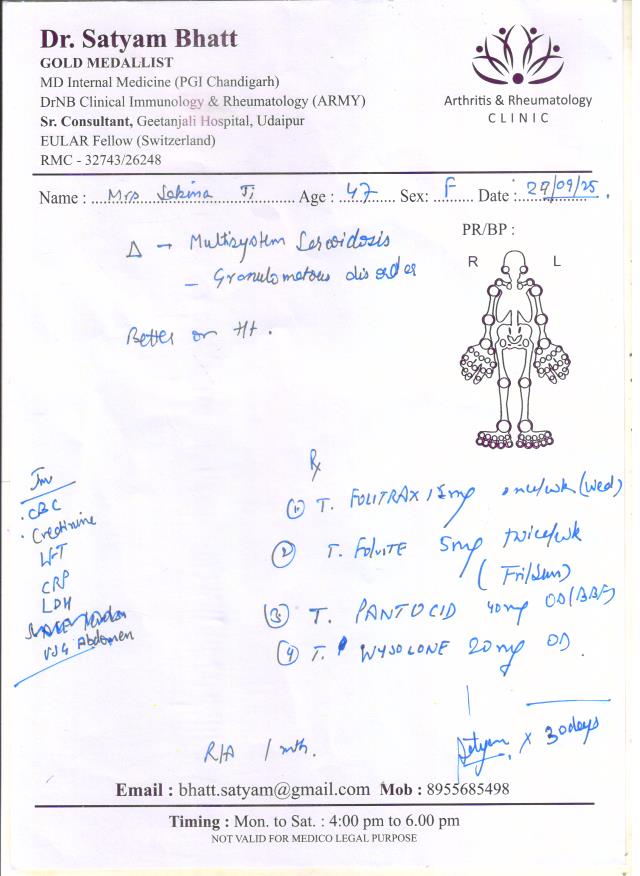 Dr. Satyam Bhatt
GOLD MEDALLIST
MD Internal Medicine (PGI Chandigarh)
DrNB Clinical Immunology & Rheumatology (ARMY)
Sr. Consultant, Geetanjali Hospital, Udaipur
EULAR Fellow (Switzerland)
RMC - 32743/26248
Arthritis & Rheumatology
CLINIC
Name : Mrs Sakina Ji Age : 47 Sex: F Date : 29/09/25
Δ → Multisystem Sarcoidosis
- Granulomatous disorder
PR/BP :
R L
Better on
Rx
① T. FOLITRAX 15mg once/wk (Wed)
② T. FOLVITE 5mg twice/wk
(Fri/Sun)
③ T. PANTOCID 40mg OD (BBF)
④ T. WYSOLONE 20mg OD
Inv
CBC
Creatinine
LFT
CRP
LDH
USG Abdomen
x 30days
Satyam
R/A 1 mth.
Email : bhatt.satyam@gmail.com Mob : 8955685498
Timing : Mon. to Sat. : 4:00 pm to 6.00 pm
NOT VALID FOR MEDICO LEGAL PURPOSE